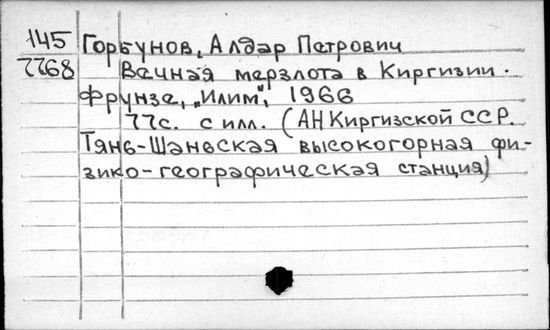 145
2268
Горбунов, Алдар Петрович
Вечная мерзлота в Киргизии.
Фрунзе, „Илим", 1966
77с. с илл. (АН Киргизской ССР.
Тянь-Шаньская высокогорная фи-
зико-географическая станция)